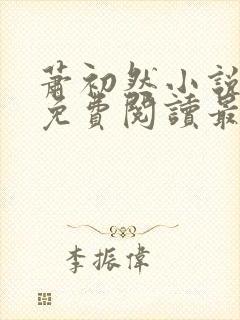 蕭初然小說
免費閱讀最
李振偉